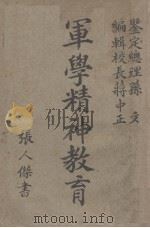 鑒定總理孫 文
編輯校長蔣中正
軍學精神教育
張人傑書